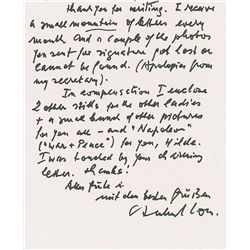 Thank you for writing. I receive
a small mountain of letters every
month and a couple of the photos
you sent for signature got lost or
cannot be found. (Apologies from
my secretary).
In compensation I enclose
2 other stills for the other ladies
+ a small bunch of other pictures
for you all – and "Napoleon"
("War + Peace") for you, Hilde.
I was touched by your charming
letter. Thanks!
Alles Gute &
mit den besten Grüßen
Herbert Lom